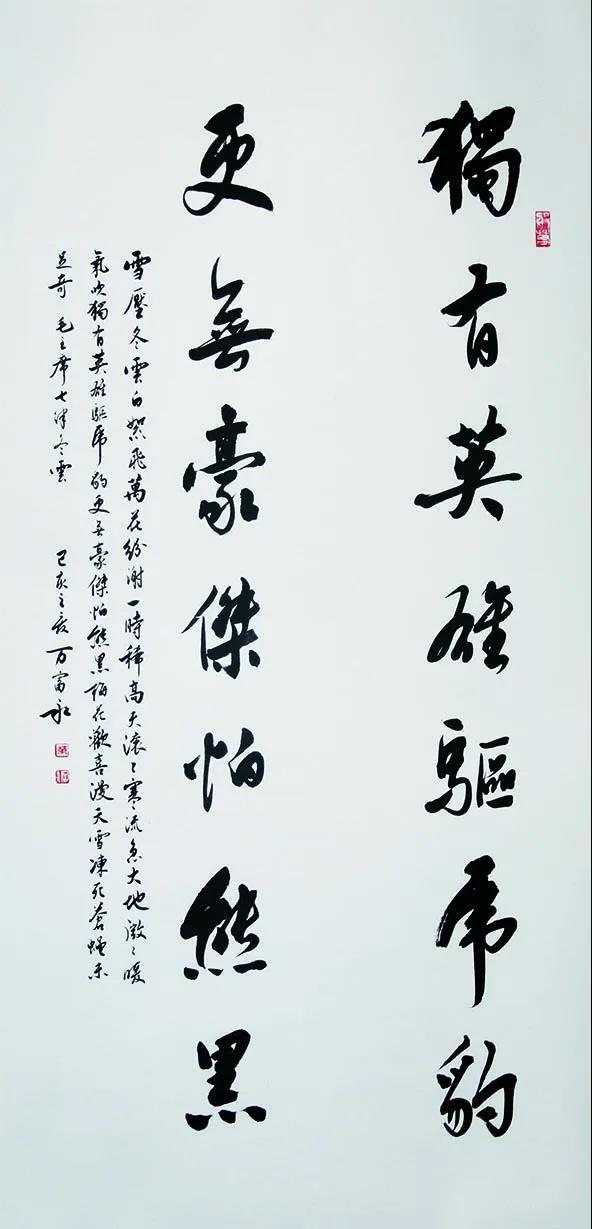 獨有英雄驅虎豹
更無豪傑怕熊黑
雪壓冬雲白絮飛萬花紛謝一時稀高天滾〻寒流急大地微〻暖
氣吹獨有英雄驅虎豹更无豪傑怕熊黑梅花歡喜漫天雪凍死蒼蠅未
足奇 毛主席七律冬雲 己亥之 万富永